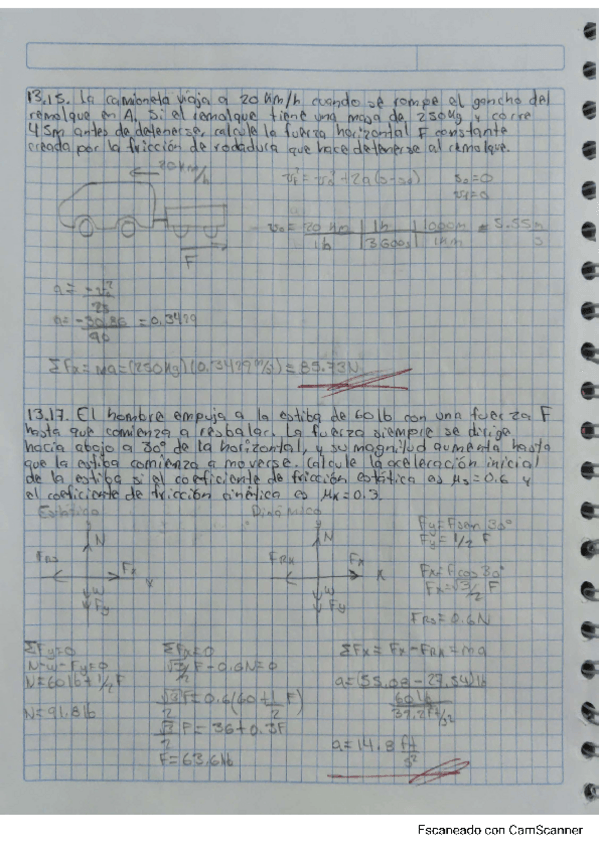 13.15. La camioneta viaja a 20 km/h cuando se rompe el gancho del
remolque en A. Si el remolque tiene una masa de 250kg y corre
45m antes de detenerse, calcule la fuerza horizontal F constante
creada por la fricción de rodadura que hace detenerse al remolque.
20 km/h
F
s₀=0
v₀ = 20 km | 1h | 1000m = 5.55 m
1h | 3600s | 1km s
a = -v₀²
a = -30.86 = 0.3429
90
ΣFx = ma = (250kg)(0.3429 m/s²) = 85.73 N
13.17. El hombre empuja a la estiba de 60 lb con una fuerza F
hasta que comienza a resbalar. La fuerza siempre se dirige
hacia abajo a 30° de la horizontal, y su magnitud aumenta hasta
que la estiba comienza a moverse. Calcule la aceleración inicial
de la estiba si el coeficiente de fricción estática es μs = 0.6 y
el coeficiente de fricción cinética es μk = 0.3.
Estático Dinámico
Fy = F sen 30°
Fy = 1/2 F
N N
FRs Fx x FRk Fx x
Fx = F cos 30°
Fx = √3/2 F
w w
Fy Fy
FRs = 0.6N
ΣFy=0 ΣFx=0 ΣFx = Fx - FRk = ma
N-w-Fy=0 √3/2 F - 0.6N = 0
N = 60 lb + 1/2 F √3/2 F = 0.6(60 + 1/2 F) a = (55.08 - 27.54) lb
60 lb
N = 91.8 lb √3/2 F = 36 + 0.3F
F = 63.6 lb a = 14.8 ft/s²
Escaneado con CamScanner